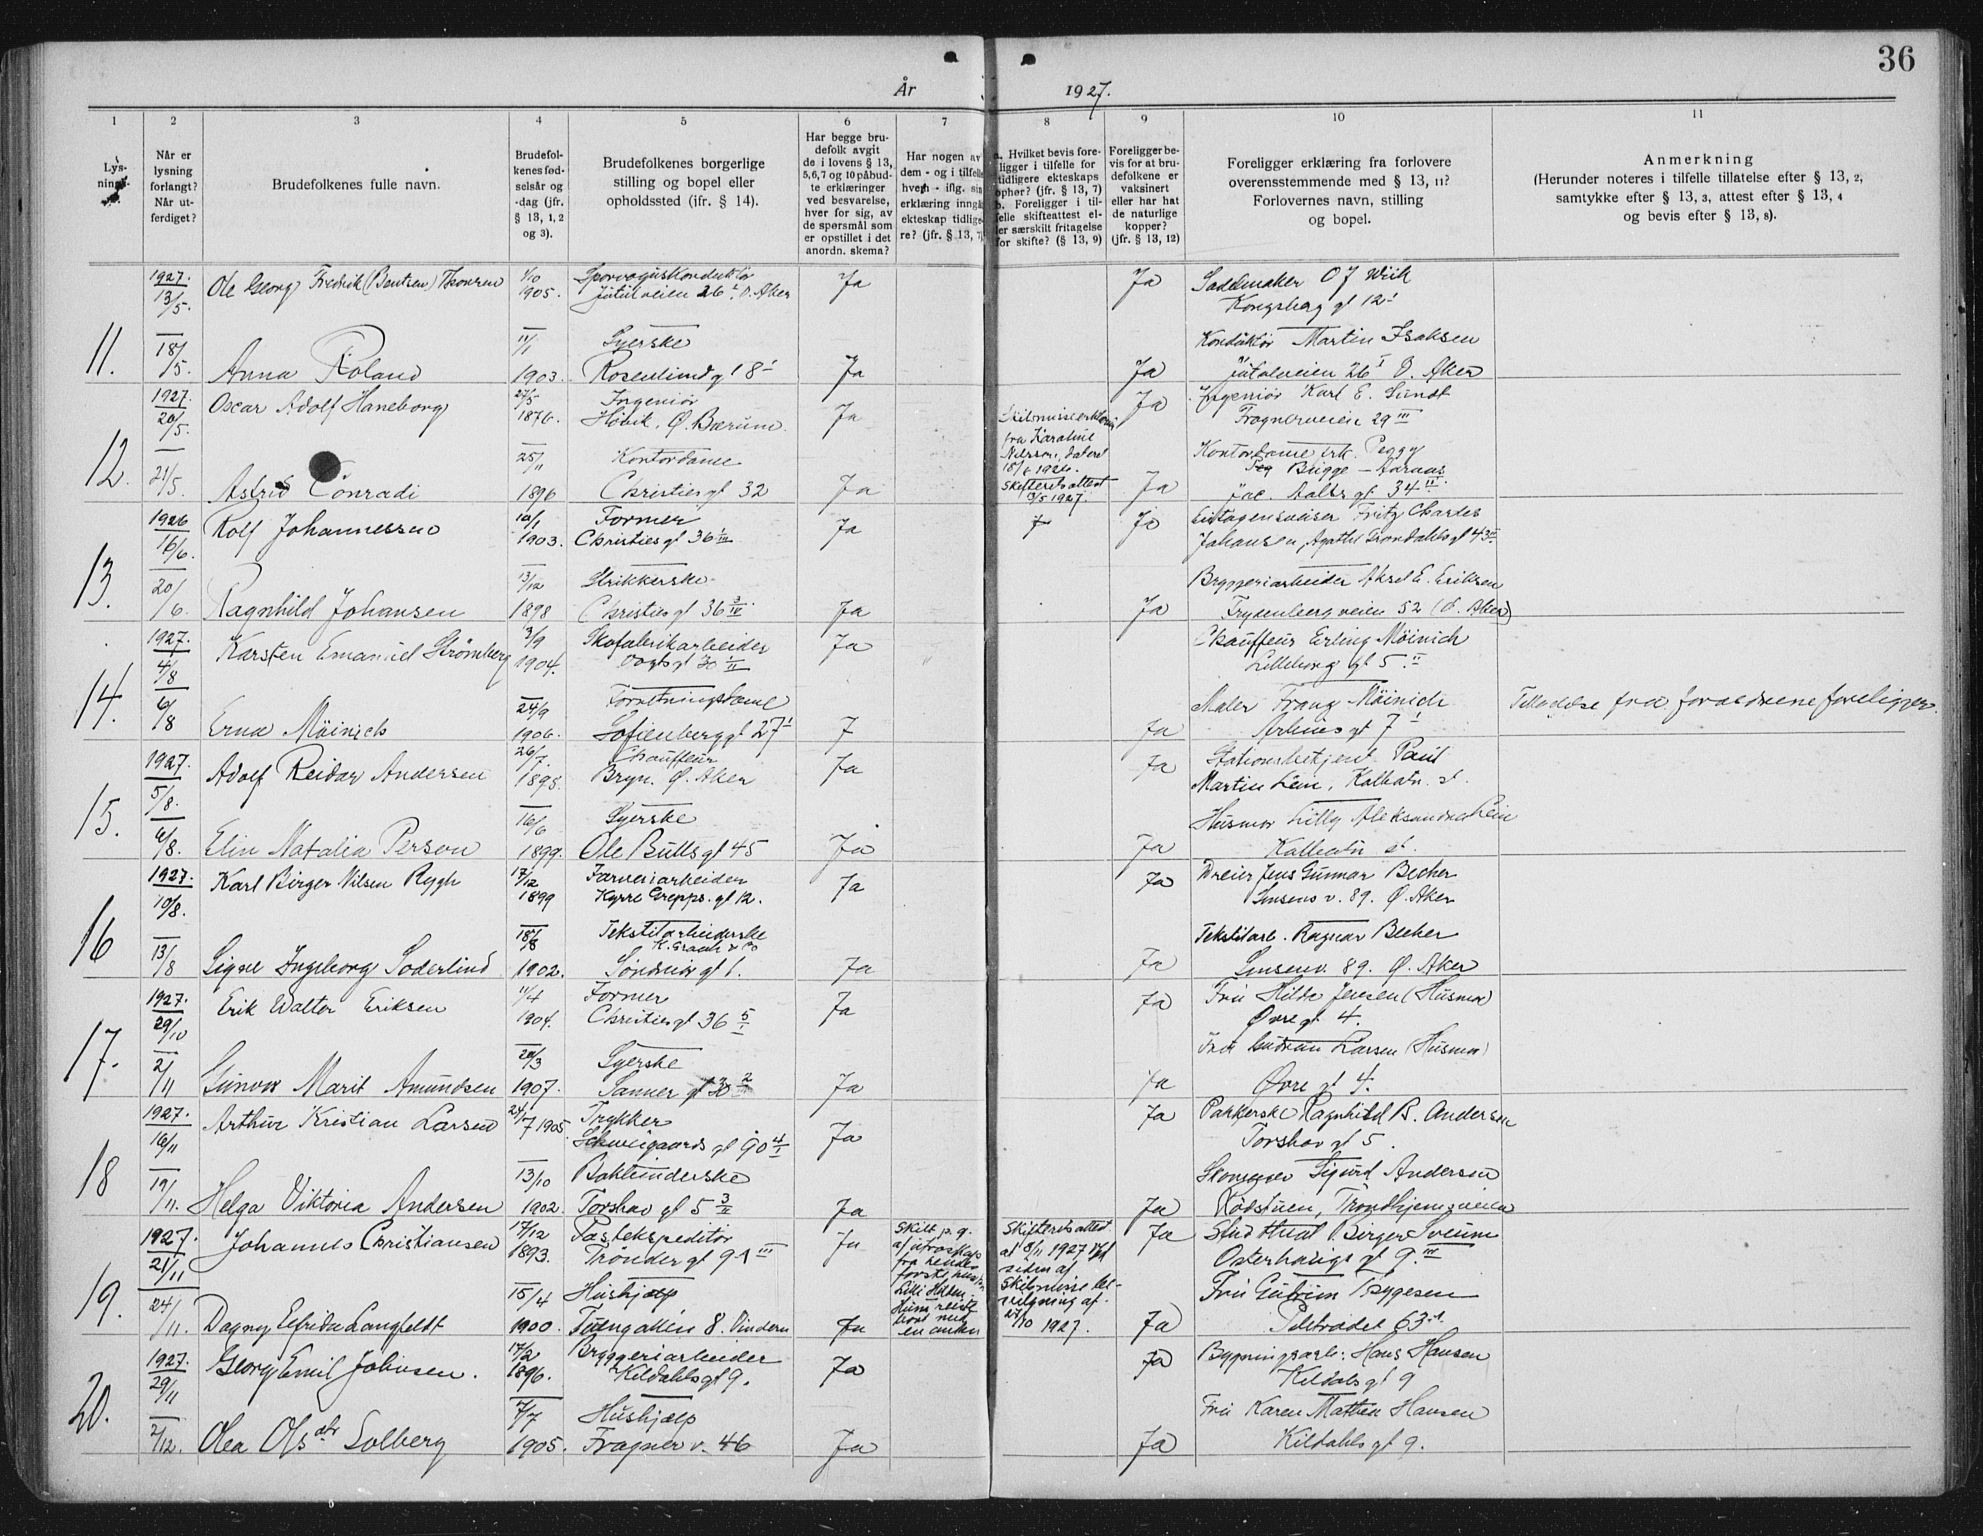 36
År 1927.
1 2 3 4 5 6 7 8 9 10 11
Når er lysning forlangt? Når utferdiget?
Brudefolkenes fulle navn.
Brudefolkenes fødselsår og -dag (jfr. § 13, 1, 2 og 3).
Brudefolkenes borgerlige stilling og bopel eller opholdssted (jfr. § 14).
Har begge brudefolk avgit de i lovens § 13, 5,6,7 og 10 påbudte erklæringer ved besvarelse, hver for sig, av de spørsmål som er opstillet i det anordn. skema?
Har nogen av dem - og i tilfelle hvem - iflg. sin erklæring inngått ekteskap tidligere? (jfr. § 13, 7)
a. Hvilket bevis foreligger i tilfelle for tidligere ekteskaps ophør? (jfr. § 13, 7) b. Foreligger i tilfelle skifteattest eller særskilt fritagelse for skifte? (§ 13, 9)
Foreligger bevis for at brudefolkene er vaksinert eller har hat de naturlige kopper? (jfr. § 13, 12)
Foreligger erklæring fra forlovere overensstemmende med § 13, 11? Forlovernes navn, stilling og bopel.
Anmerkning (Herunder noteres i tilfelle tillatelse efter § 13, 2, samtykke efter § 13, 3, attest efter § 13, 4 og bevis efter § 13, 8).
11. 1927. 13/5. Ole Georg Fredrik (Bentsen) Thoresen 1905. Sporvognskonduktør Jutulveien 26 I Ø. Aker Ja Ja Sadelmaker O J Wiik Kongsberg gt 12 I
18/5. Anna Roland 11/1 1903. Syerske Rosenlund gt 8 I Ja Ja Konduktør Martin Isaksen Jutulveien 26 I Ø. Aker
12. 1927. 20/5. Oscar Adolf Haneborg 27/5 1876. Ingeniør Høvik. Ø. Bærum. Ja Ja Ingeniør Karl E. Sundt Frognerveien 29 III
21/5. Astrid Conradi 25/11 1896 Kontordame Christies gt 32 Ja Skifteretsattest 3/5 1927. Ja Kontordame frk. Peggy Brigge - Aaraas Jac. Aalls gt 34 II
13. 1926 16/6. Rolf Johannessen 10/1 1903. Former Christies gt 36 Ja Ja Fritz Charles Johansen, Agathe Grøndahls gt 43 II
20/6 Ragnhild Johansen 13/12 1898 Strikkerske Christies gt 36 Ja Ja Bryggeriarbeider Aksel E. Eriksen veien 52 (Ø. Aker)
14. 1927. 4/8 Karsten Emanuel Strømberg 3/9 1904. Skofabrikarbeider Vogts gt 30 Ja Chauffeur Erling Möinich Lilleborg gt 5. II
6/8 Erna Möinich 24/9 1906. Forretningsdame Sofienberg gt 27 I J Ja Maler Franz Möinich gt 7 I Tilladelse fra forældrene foreligger.
15. 1927. 5/8. Adolf Reidar Andersen 26/7. 1895. Chauffeur Bryn. Ø. Aker Ja Ja Stationsbetjent Paul Martin Lein, st.
6/8. Elin Natalia Person 16/6 1899. Syerske Ole Bulls gt 45 Ja Ja Husmor Lilly Aleksandra Lein st.
16 1927. 10/8. Karl Birger Nilsen Rygh 17/12 1899 Farveriarbeider Kyrre Grepps. gt 12. Ja Ja Dreier Jens Gunnar Becher Sinsens v. 89. Ø. Aker
13/8 Signe Ingeborg Søderlind 18/8 1902. Tekstilarbeiderske K. Graah & Co Søndmør gt 1. Ja Ja Tekstilarb. Ragnar Becher Sinsenv. 89. Ø. Aker
17. 1927. 29/10 Erik Walter Eriksen 11/4 1904. Former Christies gt 36 5/I Ja Ja Fru Hilda Jensen (Husmor) Øvre gt 4.
2/11 Gunvor Marit Amundsen 20/3 1907. Syerske Sanner gt 30 Ja Ja Fru Gudrun Larsen (Husmor) Øvre gt 4.
18 1927. 16/11 Arthur Kristian Larsen 24/7 1905. Trykker Schweigaards gt 90 4/I Ja Ja Pakkerske Ragnhild B. Andersen Torshov gt 5.
19/11. Helga Viktoria Andersen 13/10 1902. Bokbinderske Torshov gt 5 3/II Ja Ja Sigurd Andersen Rødstuen, Trondhjemsveien
19. 1927. 21/11 Johannes Christiansen 17/12 1893. Postekspeditør Trønder gt 9 III Ja Skilt p. g. af utroskap fra hendes første Skifteretsattest af 8/11 1927 siden af Skilsmisse bevilgning af 27/10 1927. Ja Stud Birger Sveum Osterhaugs gt 9. III
24/11. Dagny Elfrida Langfeldt 15/4 1900. Hushjælp Tuengaléen 8. Vinderen Ja Ja Fru Gudrun Trygesen Pilestrædet 63 I
20. 1927. 29/11 Georg Emil Johnsen. 17/2 1896. Bryggeriarbeider Kildahls gt 9. Ja Ja Bygningsarb: Hans Hansen Kildals gt 9
2/12. Olea Ols dtr Solberg 7/7 1905. Hushjælp Frogner v. 46 Ja Ja Fru Karen Mathea Hansen Kildahls gt 9.